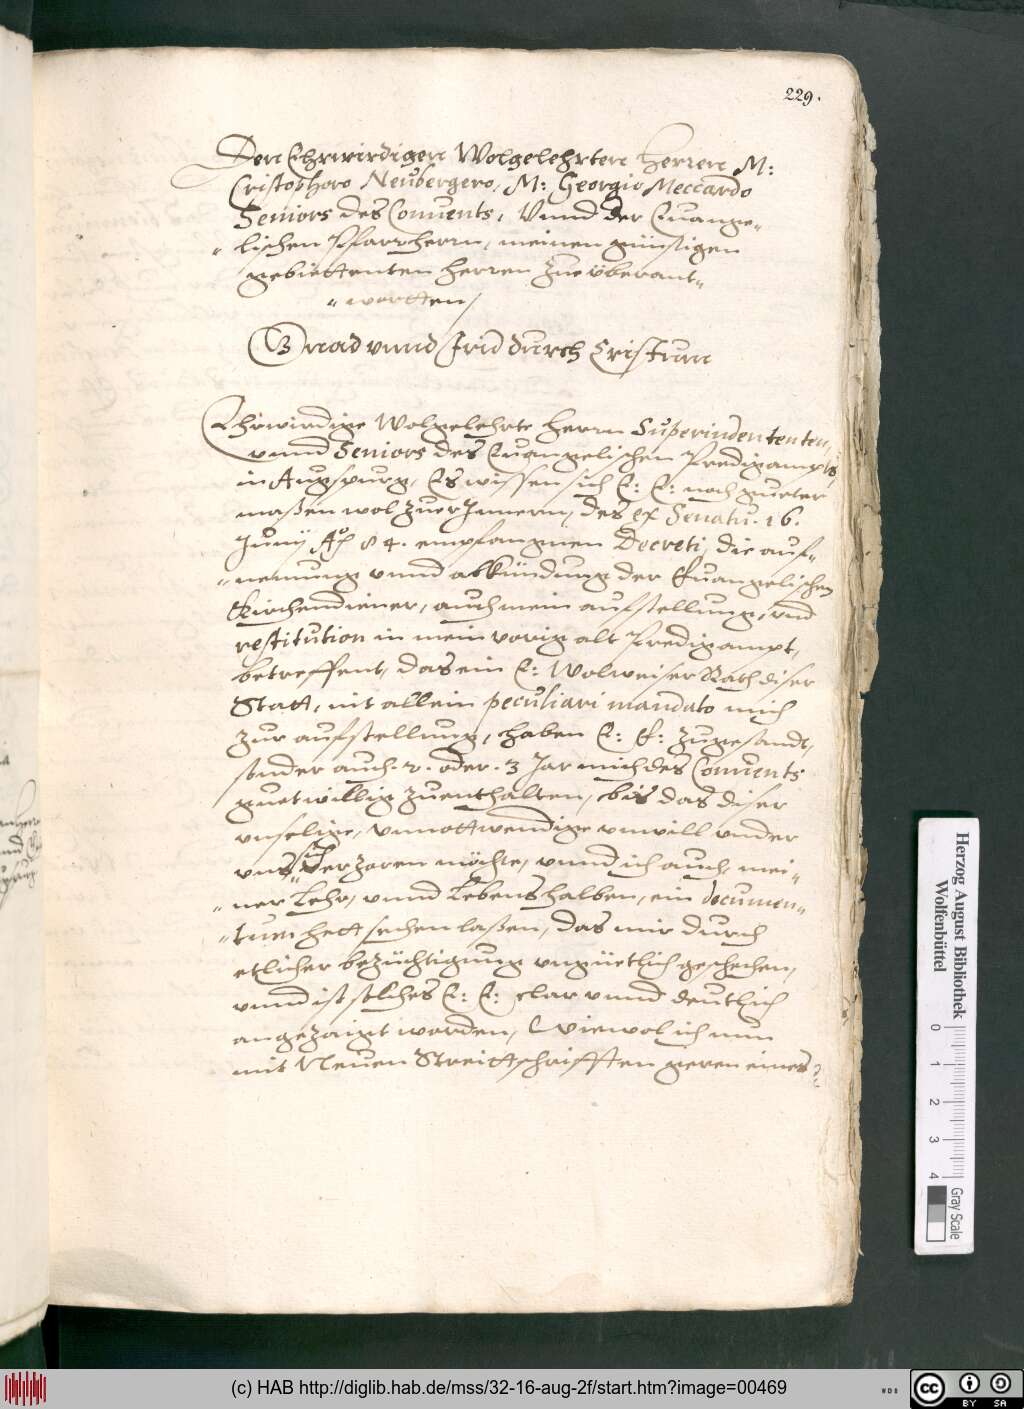 229.
Den Ehrwirdigen Wolgelehrten Herren M:
Cristophoro Neubergero, M: Georgio Meccardo
Seniors des Conuents, Vnnd der Euange-
lischen Pfarrherrn, meinen günstigen
gebiettenten Herren zue überant-
wortten/
Gnad vnnd Frid durch Cristum
Ehrwirdige Wolgelehrte Herrn Superindententen,
vnnd Seniors des Euangelischen Predigampts
in Augspurg, Es wissen sich E: E: noch gueter
maßen wol zuer Innern, des ex Senatu. 16.
Junij Aõ 84. empfangnen Decreti, die auf-
nemung vnnd abkündung der Euangelischen
Kirchendiener, auch mein aufstellung, vnd
restitution in mein vorig alt Predigampt,
betreffent, das ein E: Wolweiser Rath diser
Statt, nit allein peculiari mandato mich
zur aufstellung, haben E: E: zugesandt,
sonder auch. 2. oder. 3 Jar mich des Conuents
guetwillig zuenthalten, bis das diser
vnselige, vnnottwendige vnwill vnder
vns sich verzoren möchte, vnnd ich auch, mei-
ner Lehr, vnnd Lebens halben, ein documen-
tum hett sechen laßen, das mir durch
etlicher bezüchtigung vngüetlich geschechen,
vnnd ist solches E: E: clar vnnd deutlich
angezaigt worden, Wiewol ich nun
mit Neuen Streittschrifften geren eines
Herzog August Bibliothek
Wolfenbüttel
0 1 2 3 4
Gray Scale
(c) HAB http://diglib.hab.de/mss/32-16-aug-2f/start.htm?image=00469
WDB
cc BY SA